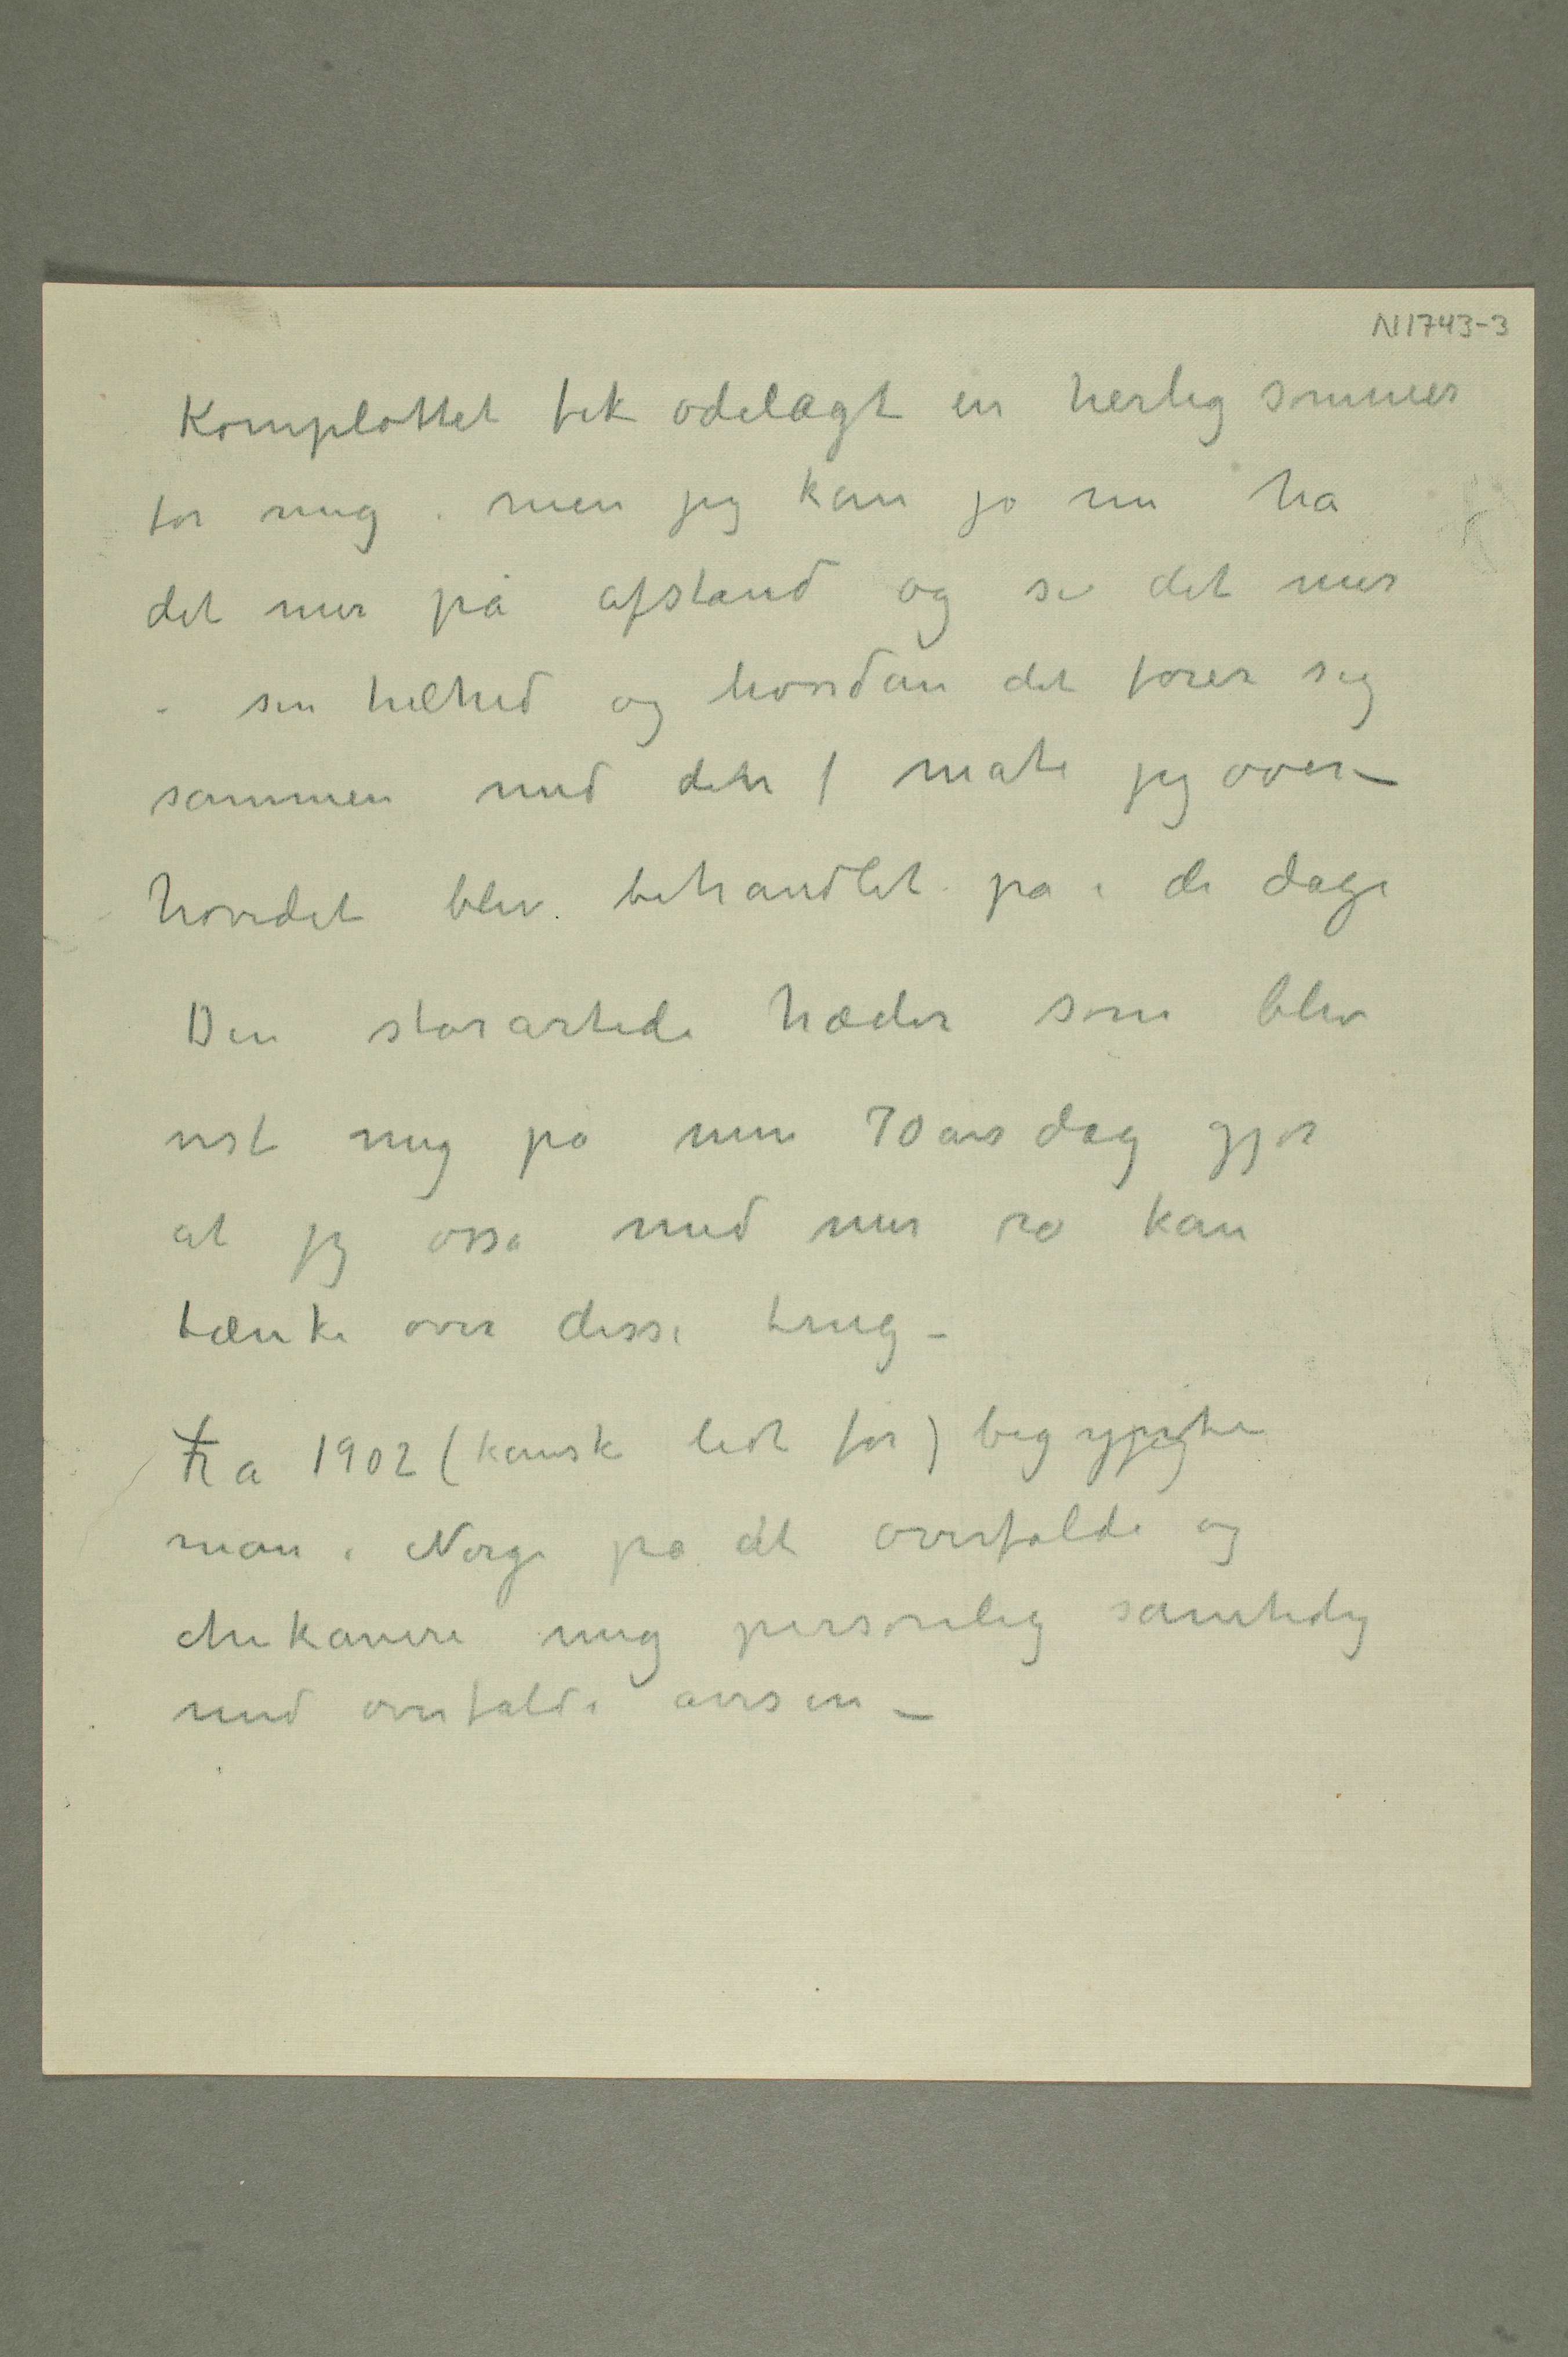 N1743-3
Komplottet fik ødelagt en herlig sommer
for mig. men jeg kan jo nu ha
det mer på afstand og se det mer
i sin helhed og hvordan det fører sig
sammen med den måte jeg over-
hovedet blev behandlet på i de dage
Den storartede hæder som blev
vist mig på min 70 års dag gjør
at jeg osså med mer ro kan
tænke over disse ting –
Fra 1902 (kanske lidt før) begynte
man i Norge på at overfalde og
chikanere mig personlig samtidig
med overfald i avisen –